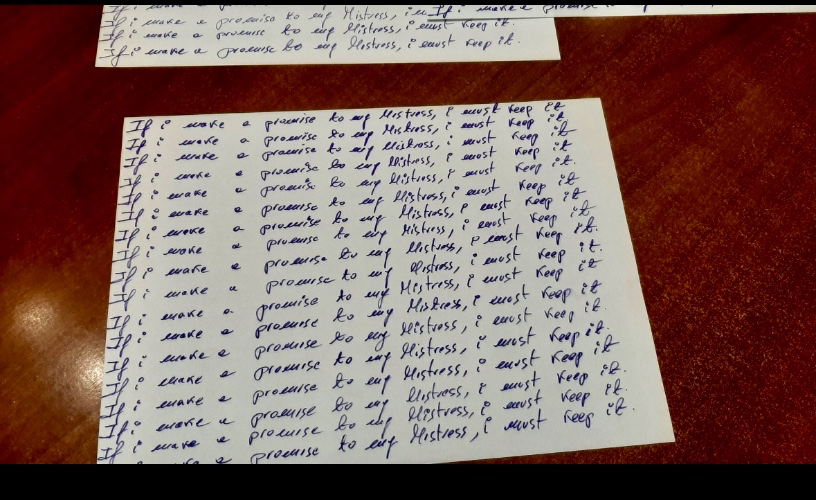 If i make a promise to my Mistress, i
If i make a promise
If i make a promise to my Mistress, i must keep it.
If i make a promise to my Mistress, i must keep it.
If i make a promise to my Mistress, i must keep it
If i make a promise to my Mistress, i must keep it
If i make a promise to my Mistress, i must keep it
If i make a promise to my Mistress, i must keep it.
If i make a promise to my Mistress, i must keep it
If i make a promise to my Mistress, i must keep it
If i make a promise to my Mistress, i must keep it.
If i make a promise to my Mistress, i must keep it.
If i make a promise to my Mistress, i must keep it
If i make a promise to my Mistress, i must keep it
If i make a promise to my Mistress, i must keep it.
If i make a promise to my Mistress, i must keep it.
If i make a promise to my Mistress, i must keep it
If i make a promise to my Mistress, i must keep it
If i make a promise to my Mistress, i must keep it.
If i make a promise to my Mistress, i must keep it.
If i make a promise to my Mistress, i must keep it.